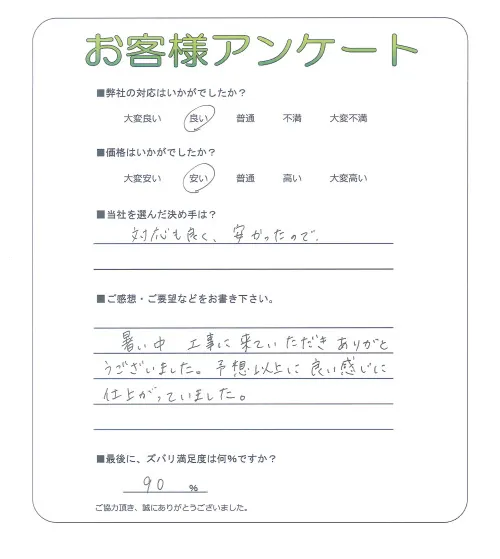 お客様アンケート
■弊社の対応はいかがでしたか？
大変良い 良い 普通 不満 大変不満
■価格はいかがでしたか？
大変安い 安い 普通 高い 大変高い
■当社を選んだ決め手は？
対応も良く、安かったので.
■ご感想・ご要望などをお書き下さい。
暑い中 工事に来ていただきありがと
うございました。予想以上に良い感じに
仕上がっていました。
■最後に、ズバリ満足度は何％ですか？
90 ％
ご協力頂き、誠にありがとうございました。